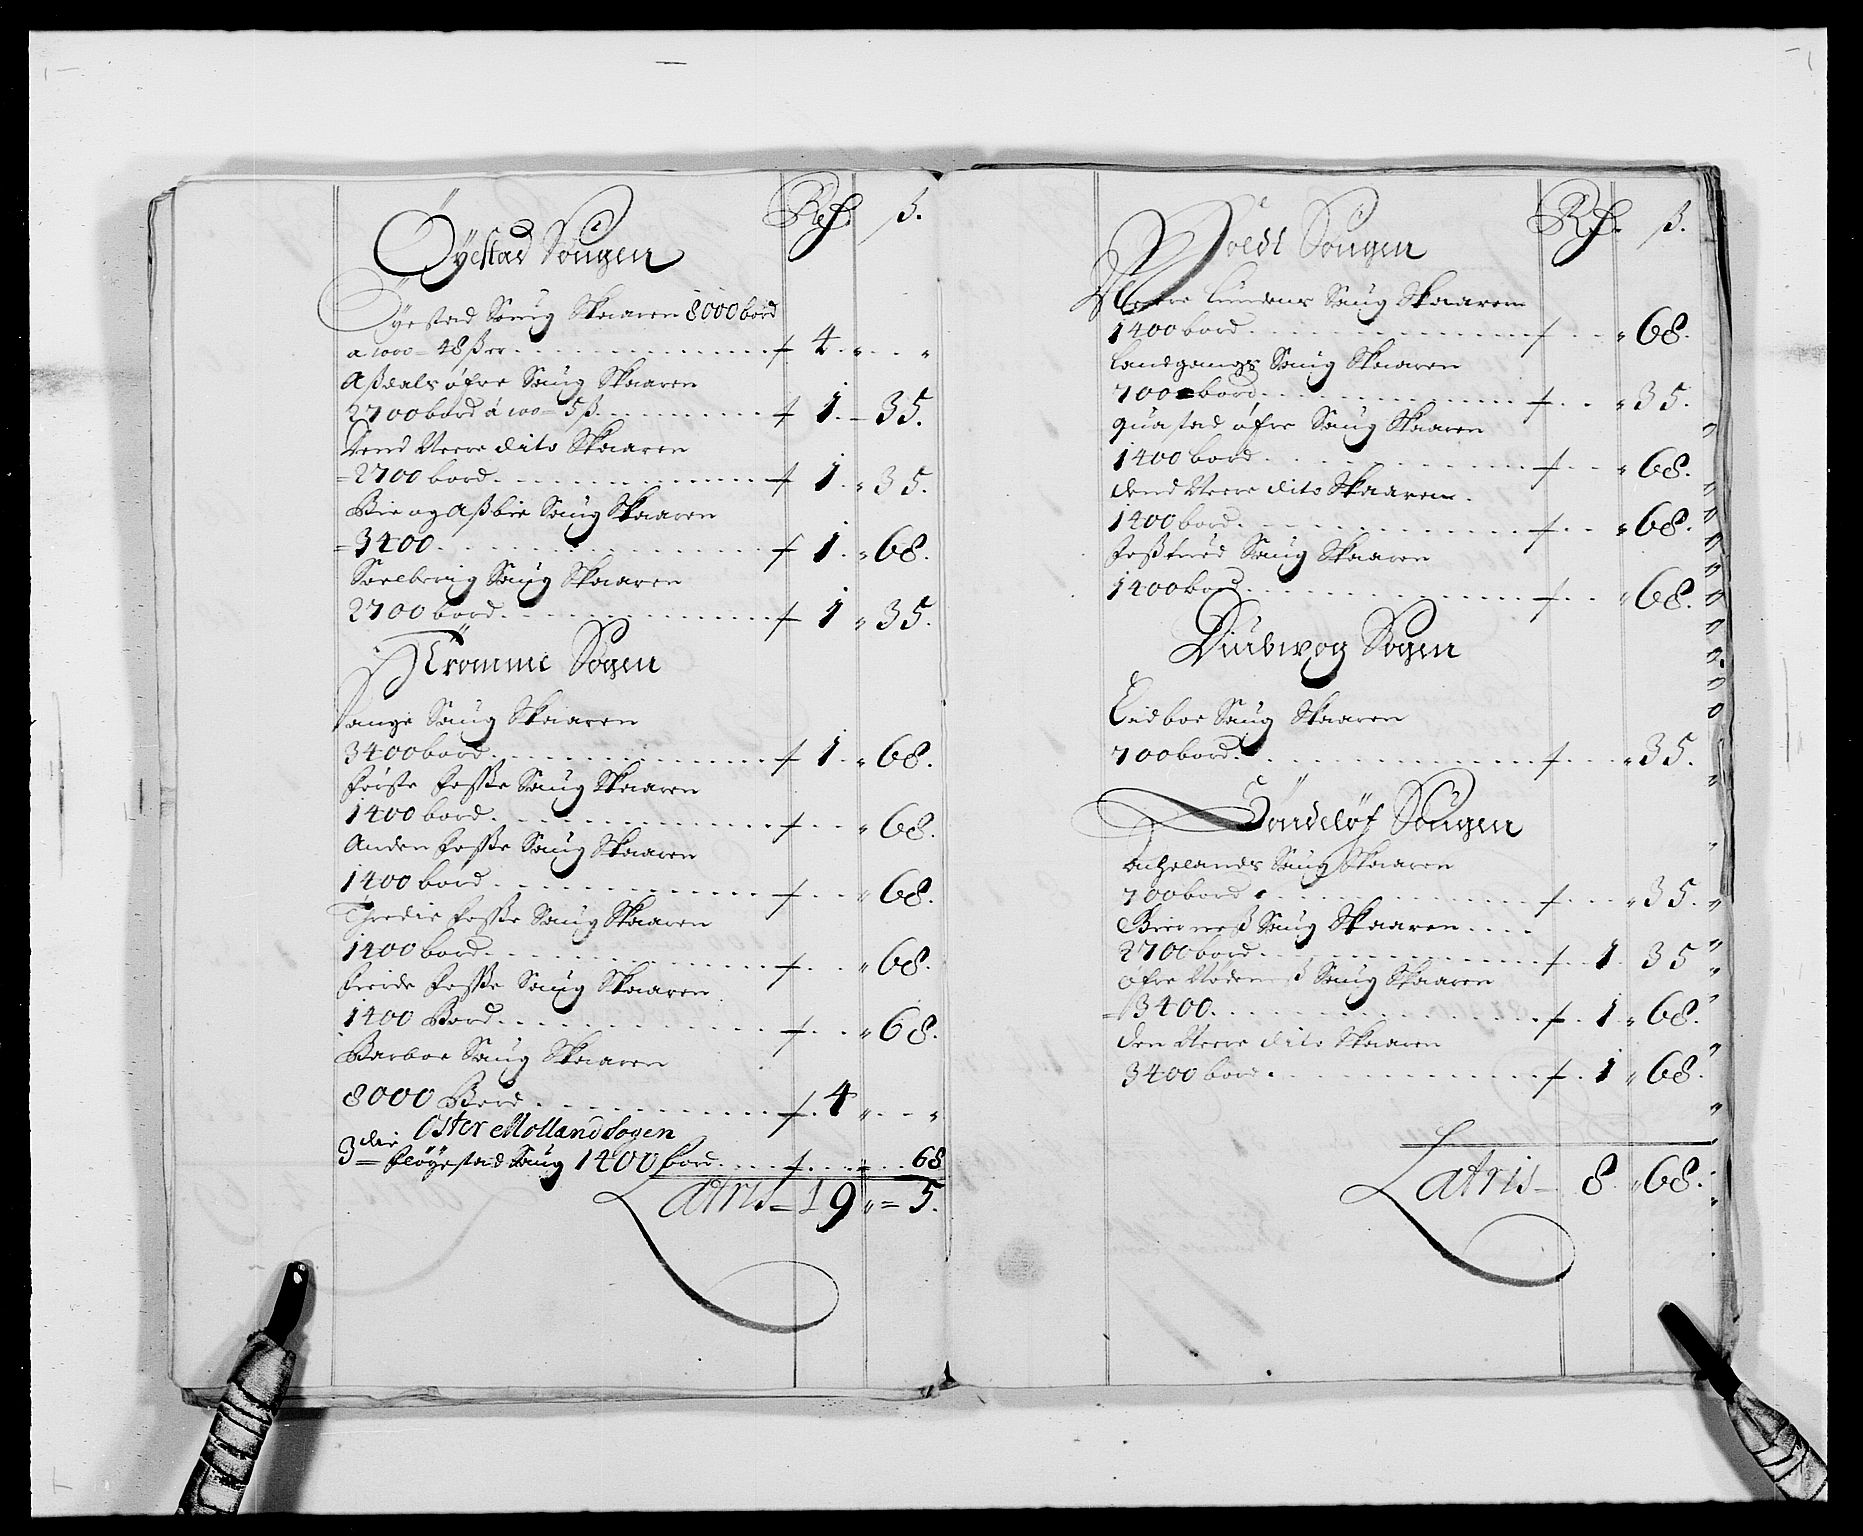 Rdr. ß.
Öyestad Sougen
Öyestad Saug Skaaren 8000 bord
a 1000 = 48 ßer . . . . . 4 " . . "
Aßdals øfre Saug Skaaren
2700 bord á 100 = 5 ß . . . . . 1 - 35.
Dend Nerre dito Skaaren
=2700 bord . . . . . 1 " 35.
Bie og Aßbie Saug Skaaren
=3400 . . . . . 1 " 68.
Saelberig Saug Skaaren
2700 bord . . . . . 1 " 35.
Tromme Sogen
Vange Saug Skaaren
3400 bord . . . . . 1 " 68.
første foßße Saug Skaaren
1400 bord . . . . . " 68.
Anden foßße Saug Skaaren
1400 bord . . . . . " 68.
Thredie foßße Saug Skaaren
1400 bord . . . . . " 68.
fierde foßße Saug Skaaren
1400 Bord . . . . . " 68.
Barboe Saug Skaaren
8000 Bord . . . . . 4 " . . "
Oster Molland Sogen
3die fløyestad Saug 1400 bord . . . . . 68
Latris - 19 " = 5.
Rdr. ß.
Holdt Sougen
Nerre Lundens Saug Skaaren
1400 bord . . . . . " 68.
Landgangs Saug Skaaren
700 bord . . . . . " 35.
quastad øfre Saug Skaaren
1400 bord . . . . . " 68.
dend Nerre dito Skaaren.
1400 bord . . . . . " 68.
foßtued Saug Skaaren
1400 bord . . . . . " 68.
Diubwog Sogen
Eidboe Saug Skaaren
700 bord . . . . . " 35.
Söndelöf Sougen
Saug Skaaren
700 bord . . . . . " 35.
Bierneß Saug Skaaren . . . .
2700 bord . . . . . 1 35
øfre Nødeneß Saug Skaaren
=3400 . . . . . 1 " 68.
den Nerre dito Skaaren
3400 bord . . . . . 1 " 68.
Latris - 8 " 68.